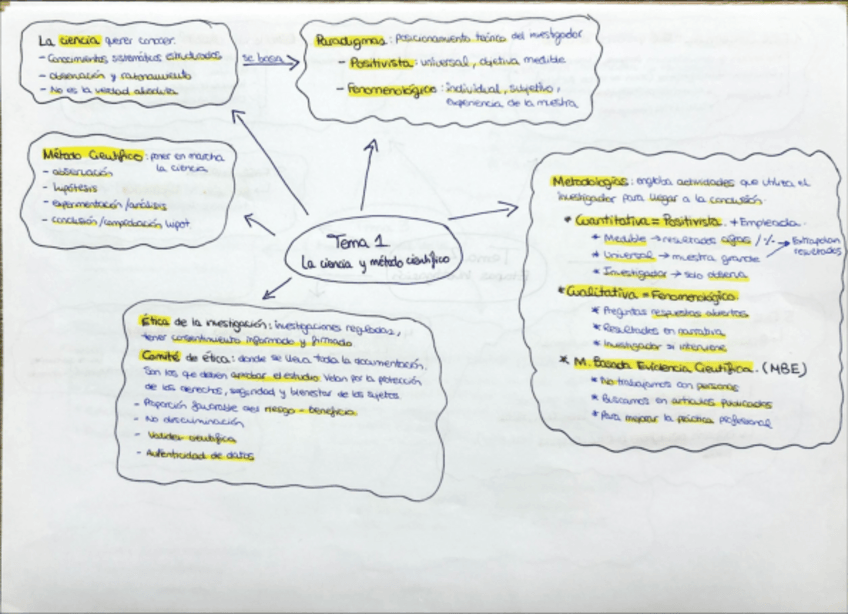 La ciencia querer conocer.
- Conocimientos sistemáticos estructurados
- observación y razonamiento
- No es la verdad absoluta
se basa
Paradigmas: posicionamiento teórico del investigador
- Positivista: universal, objetiva medible
- Fenomenológico: individual, subjetivo,
experiencia de la muestra
Método Científico: poner en marcha
la ciencia
- observación
- hipótesis
- experimentación/análisis
- conclusión/comprobación hipot.
Tema 1
La ciencia y método científico
Metodologías: engloba actividades que utiliza el
investigador para llegar a la conclusión.
* Cuantitativa = Positivista. + Empleada.
* Medible → resultados cifras / % → Extrapolan
resultados
* Universal → muestra grande
* Investigador → solo observa
* Cualitativa = Fenomenológico
* Preguntas respuestas abiertas
* Resultados en narrativa
* Investigador si interviene
* M. Basada Evidencia Científica. (MBE)
* No trabajamos con personas
* Buscamos en artículos publicados
* Para mejorar la práctica profesional
Ética de la investigación: investigaciones reguladas,
tener consentimiento informado y firmado
Comité de ética: donde se lleva toda la documentación.
Son los que deben aprobar el estudio. Velan por la protección
de los derechos, seguridad y bienestar de los sujetos.
- Proporción favorable del riesgo - beneficio.
- No discriminación
- Validez científica
- Autenticidad de datos